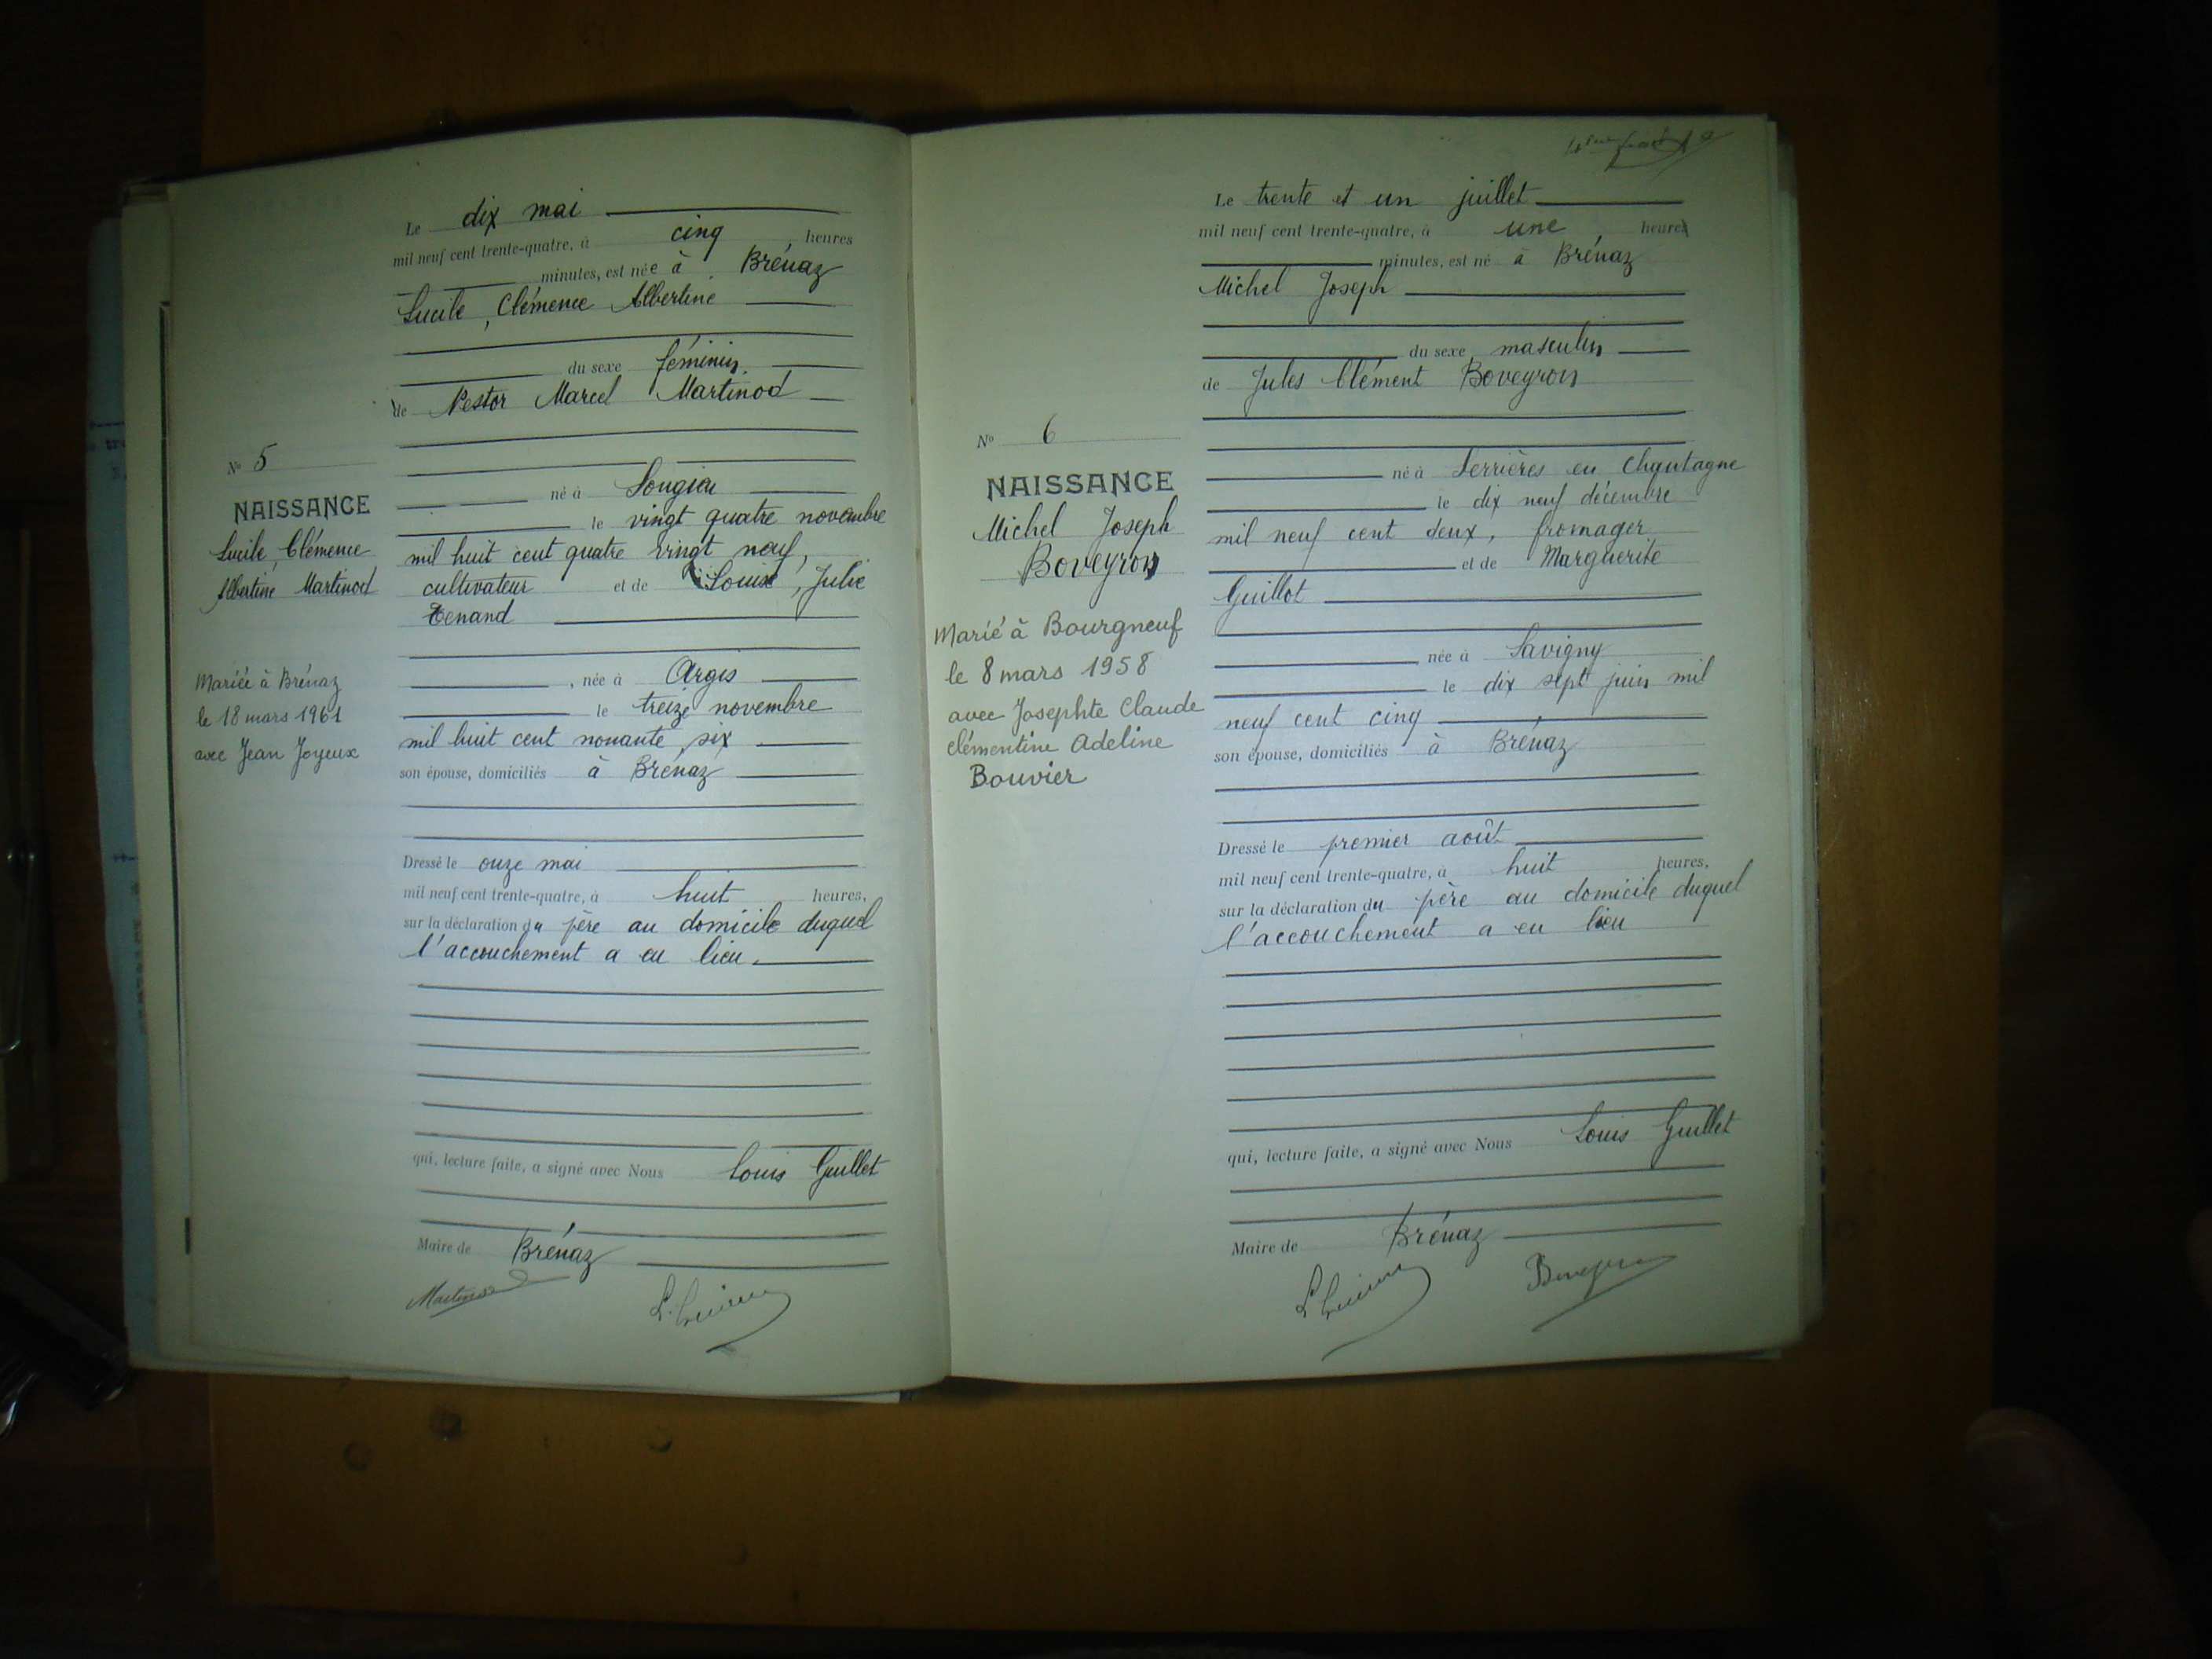 Le dix mai
mil neuf cent trente-quatre, à cinq heures
minutes, est née à Brénaz
Lucile, Clémence Albertine
du sexe féminin
de Nestor Marcel Martinod
né à Songieu
le vingt quatre novembre
mil huit cent quatre vingt neuf,
cultivateur et de Louise, Julie
Tenand
, née à Argis
le treize novembre
mil huit cent nonante six
son épouse, domiciliés à Brénaz
Dressé le onze mai
mil neuf cent trente-quatre, à huit heures,
sur la déclaration du père au domicile duquel
l'accouchement a eu lieu.
qui, lecture faite, a signé avec Nous Louis Guillet
Maire de Brénaz
Martinod
N° 5
NAISSANCE
Lucile, Clémence
Albertine Martinod
Mariée à Brénaz
le 18 mars 1961
avec Jean Joyeux
Le trente et un juillet
mil neuf cent trente-quatre, à une heure
minutes, est né à Brénaz
Michel Joseph
du sexe masculin
de Jules Clément Boveyron
né à Serrières en Chautagne
le dix neuf décembre
mil neuf cent deux, fromager
et de Marguerite
Guillot
née à Savigny
le dix sept juin mil
neuf cent cinq
son épouse, domiciliés à Brénaz
Dressé le premier août
mil neuf cent trente-quatre, à huit heures,
sur la déclaration du père au domicile duquel
l'accouchement a eu lieu
qui, lecture faite, a signé avec Nous Louis Guillet
Maire de Brénaz
N° 6
NAISSANCE
Michel Joseph
Boveyron
Marié à Bourgneuf
le 8 mars 1958
avec Josephte Claude
Clémentine Adeline
Bouvier